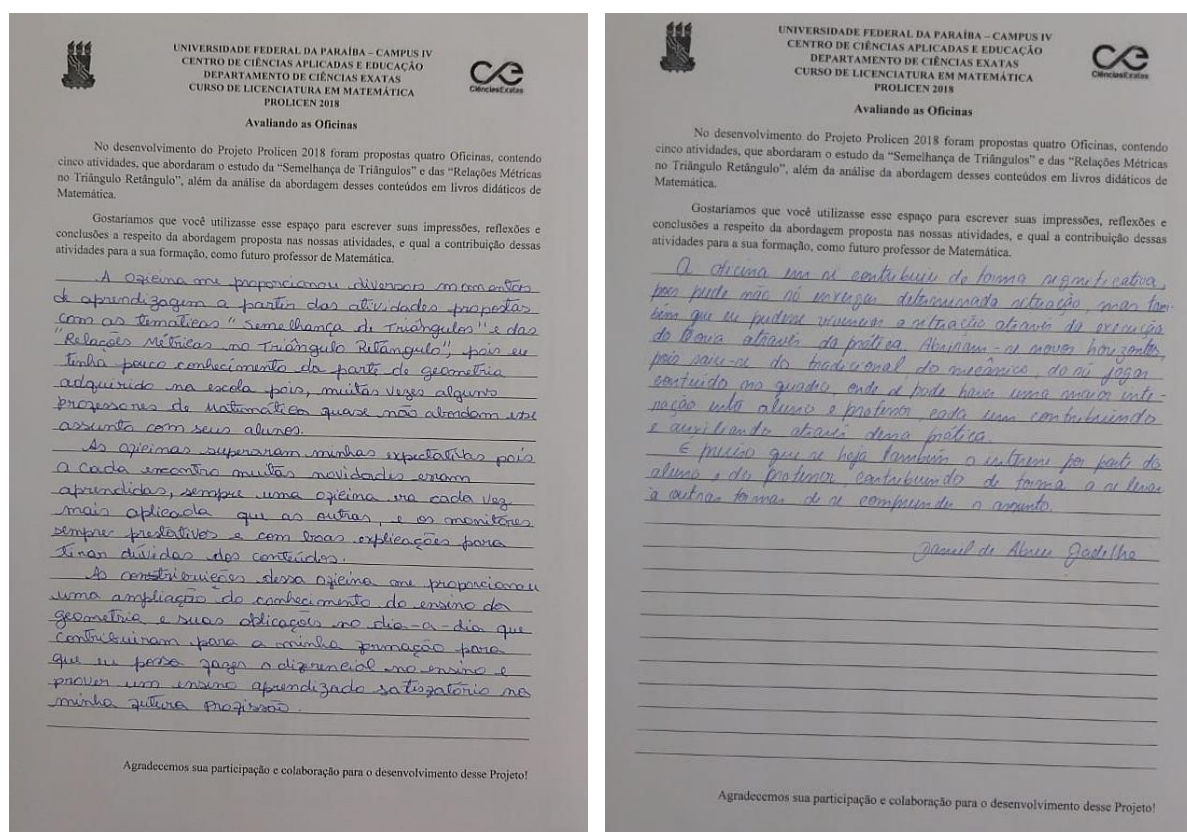 UNIVERSIDADE FEDERAL DA PARAÍBA – CAMPUS IV
CENTRO DE CIÊNCIAS APLICADAS E EDUCAÇÃO
DEPARTAMENTO DE CIÊNCIAS EXATAS
CURSO DE LICENCIATURA EM MATEMÁTICA
PROLICEN 2018
CiênciasExatas
Avaliando as Oficinas
No desenvolvimento do Projeto Prolicen 2018 foram propostas quatro Oficinas, contendo
cinco atividades, que abordaram o estudo da “Semelhança de Triângulos” e das “Relações Métricas
no Triângulo Retângulo”, além da análise da abordagem desses conteúdos em livros didáticos de
Matemática.
Gostaríamos que você utilizasse esse espaço para escrever suas impressões, reflexões e
conclusões a respeito da abordagem proposta nas nossas atividades, e qual a contribuição dessas
atividades para a sua formação, como futuro professor de Matemática.
A oficina me proporcionou diversos momentos
de aprendizagem a partir das atividades propostas
com as temáticas "semelhança de Triângulos" e das
"Relações Métricas no Triângulo Retângulo", pois eu
tinha pouco conhecimento da parte de geometria
adquirido na escola pois, muitas vezes alguns
professores de matemática quase não abordam esse
assunto com seus alunos.
As oficinas superaram minhas expectativas pois
a cada encontro muitas novidades eram
aprendidas, sempre uma oficina era cada vez
mais aplicada que as outras, e os monitores
sempre prestativos e com boas explicações para
tirar dúvidas dos conteúdos.
As dessa oficina me proporcionou
uma ampliação do conhecimento do ensino da
geometria e suas aplicações no dia-a-dia que
contribuiram para a minha formação para
que eu possa fazer o diferencial no ensino e
prover um ensino aprendizado satisfatório na
minha futura profissão.
Agradecemos sua participação e colaboração para o desenvolvimento desse Projeto!
UNIVERSIDADE FEDERAL DA PARAÍBA – CAMPUS IV
CENTRO DE CIÊNCIAS APLICADAS E EDUCAÇÃO
DEPARTAMENTO DE CIÊNCIAS EXATAS
CURSO DE LICENCIATURA EM MATEMÁTICA
PROLICEN 2018
CiênciasExatas
Avaliando as Oficinas
No desenvolvimento do Projeto Prolicen 2018 foram propostas quatro Oficinas, contendo
cinco atividades, que abordaram o estudo da “Semelhança de Triângulos” e das “Relações Métricas
no Triângulo Retângulo”, além da análise da abordagem desses conteúdos em livros didáticos de
Matemática.
Gostaríamos que você utilizasse esse espaço para escrever suas impressões, reflexões e
conclusões a respeito da abordagem proposta nas nossas atividades, e qual a contribuição dessas
atividades para a sua formação, como futuro professor de Matemática.
A oficina em si contribuiu de forma significativa,
pois pude não só enxergar determinada situação, mas tam-
bém que eu pudesse vivenciar a situação através da execução
da teoria através da prática. Abriram-se novos horizontes,
pois saiu-se do tradicional do mecânico, do só jogar
conteúdo no quadro, onde se pode haver uma maior inte-
ração entre aluno e professor, cada um contribuindo
e auxiliando através dessa prática.
É preciso que se haja também o interesse por parte do
aluno e do professor, contribuindo de forma a se levar
a outras formas de se compreender o assunto.
de Abreu Gadelha
Agradecemos sua participação e colaboração para o desenvolvimento desse Projeto!